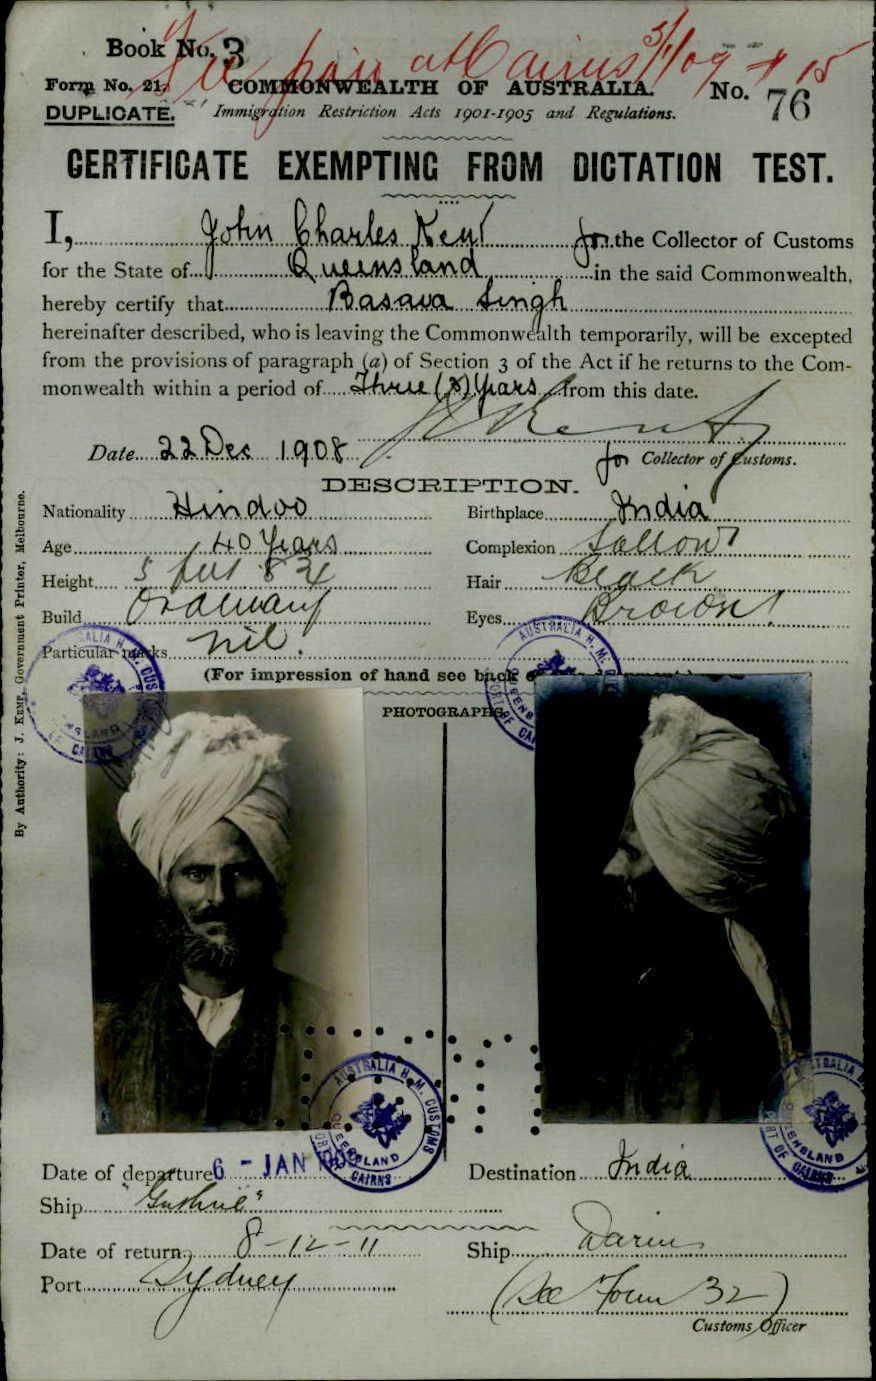 Book No. 3
Fee paid at Cairns 5/1/09
Form No. 21.
COMMONWEALTH OF AUSTRALIA.
No. 76
DUPLICATE.
Immigration Restriction Acts 1901-1905 and Regulations.
CERTIFICATE EXEMPTING FROM DICTATION TEST.
I, John Charles Kent for the Collector of Customs
for the State of Queensland in the said Commonwealth,
hereby certify that Basava Singh
hereinafter described, who is leaving the Commonwealth temporarily, will be excepted
from the provisions of paragraph (a) of Section 3 of the Act if he returns to the Com-
monwealth within a period of Three (3) Years from this date.
Date 22 Dec 1908
for Collector of Customs.
DESCRIPTION.
Nationality Hindoo
Birthplace India
Age 40 Years
Complexion Sallow
Height 5 feet 8 3/4
Hair Black
Build Ordinary
Eyes Brown
Particular marks nil.
(For impression of hand see back of
PHOTOGRAPHS
AUSTRALIA H.M. CUSTOMS
QUEENSLAND
PORT OF CAIRNS
Date of departure 6 - JAN
Destination India
Ship "Guthrie"
Date of return 8-12-11
Ship
Port Sydney
(See Form 32)
Customs Officer
By Authority: J. Kemp, Government Printer, Melbourne.